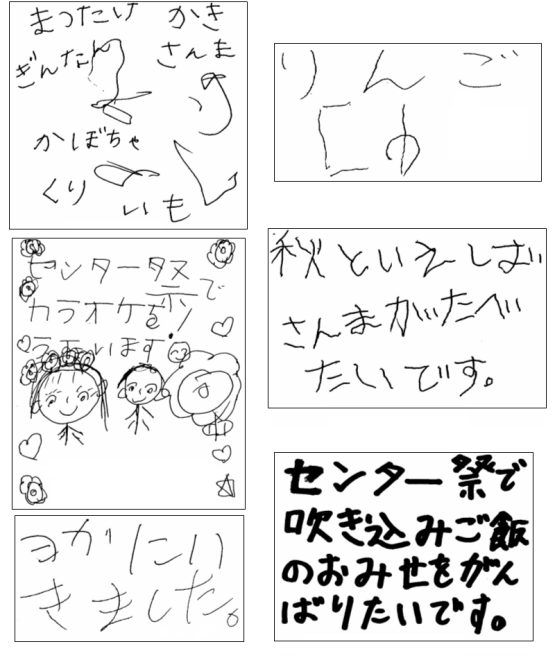 まつたけ かき
ぎんなん さんま
かぼちゃ
くり いも
りんご
センター祭で
カラオケを
います!
秋といえば
さんまがたべ
たいです。
ヨガにい
きました。
センター祭で
吹き込みご飯
のおみせをがん
ばりたいです。